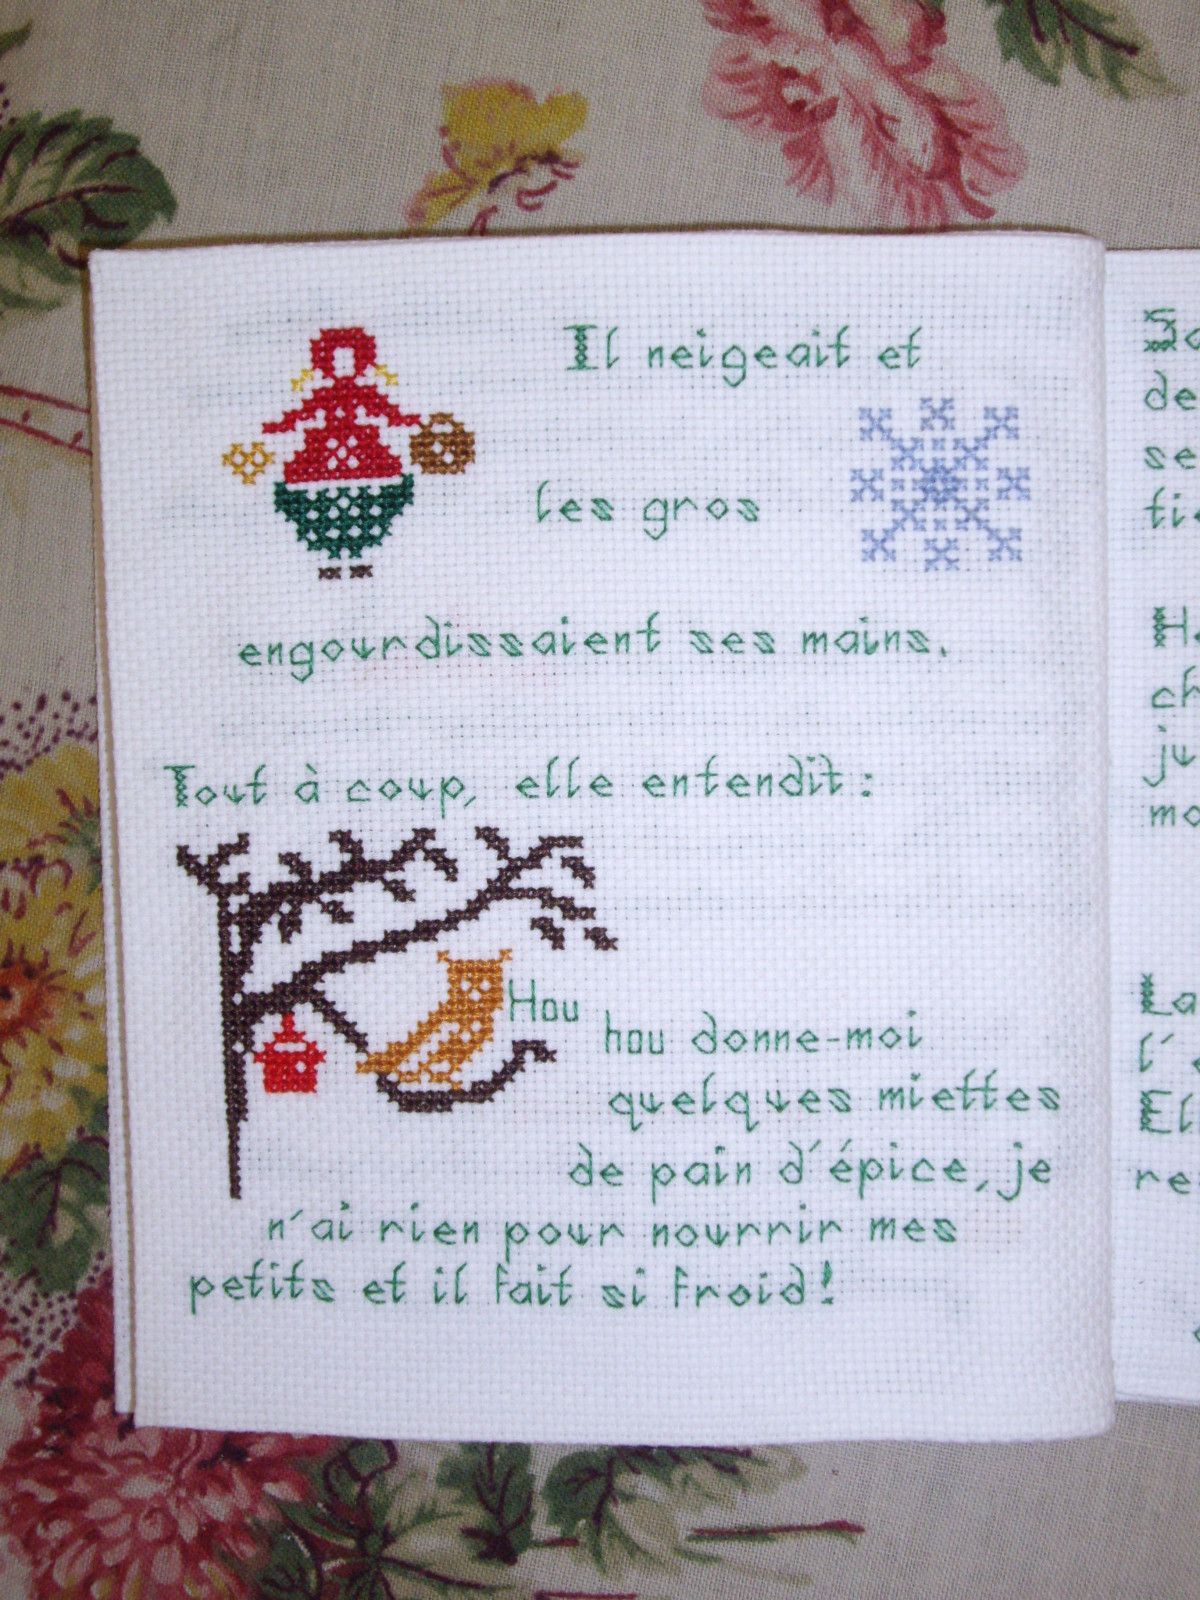 Il neigeait et
les gros
engourdissaient ses mains.
Tout à coup, elle entendit :
Hou
hou donne-moi
quelques miettes
de pain d'épice, je
n'ai rien pour nourrir mes
petits et il fait si froid!
de
se
H
ch
mo
l'
re